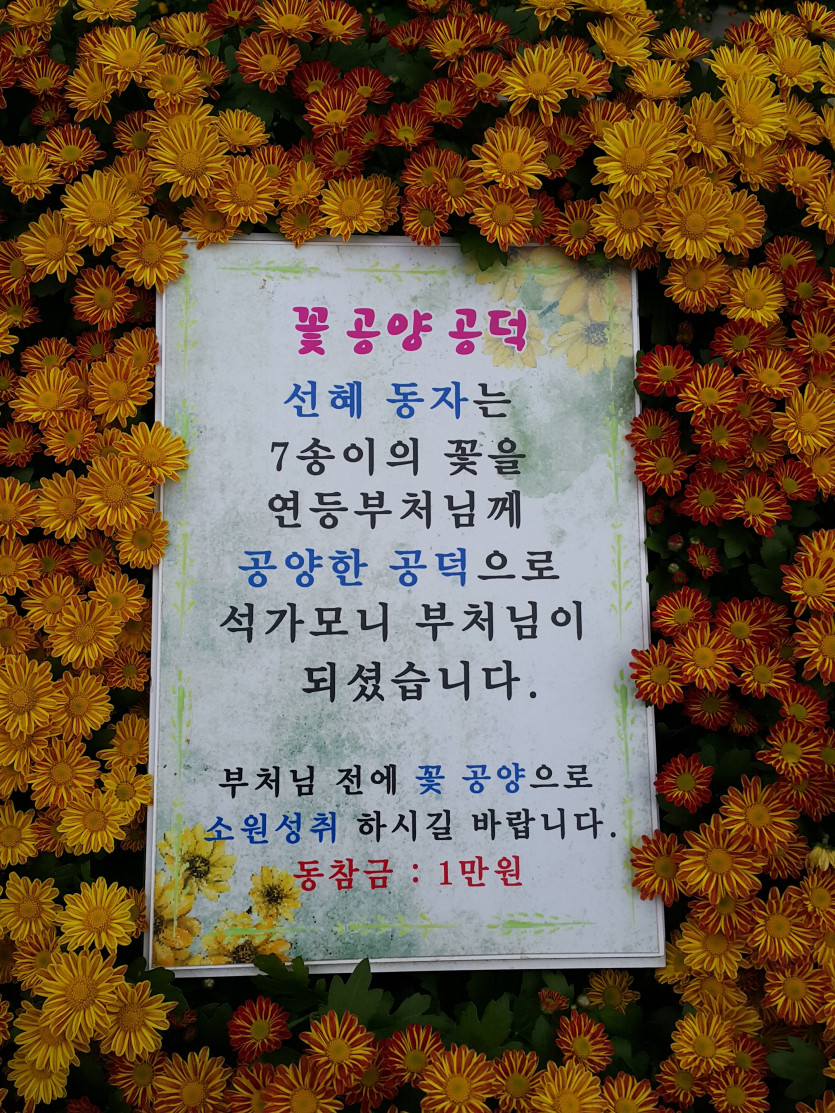 꽃 공양 공덕
선혜 동자는
7송이의 꽃을
연등부처님께
공양한 공덕으로
석가모니 부처님이
되셨습니다.
부처님 전에 꽃 공양으로
소원성취 하시길 바랍니다.
동참금 : 1만원